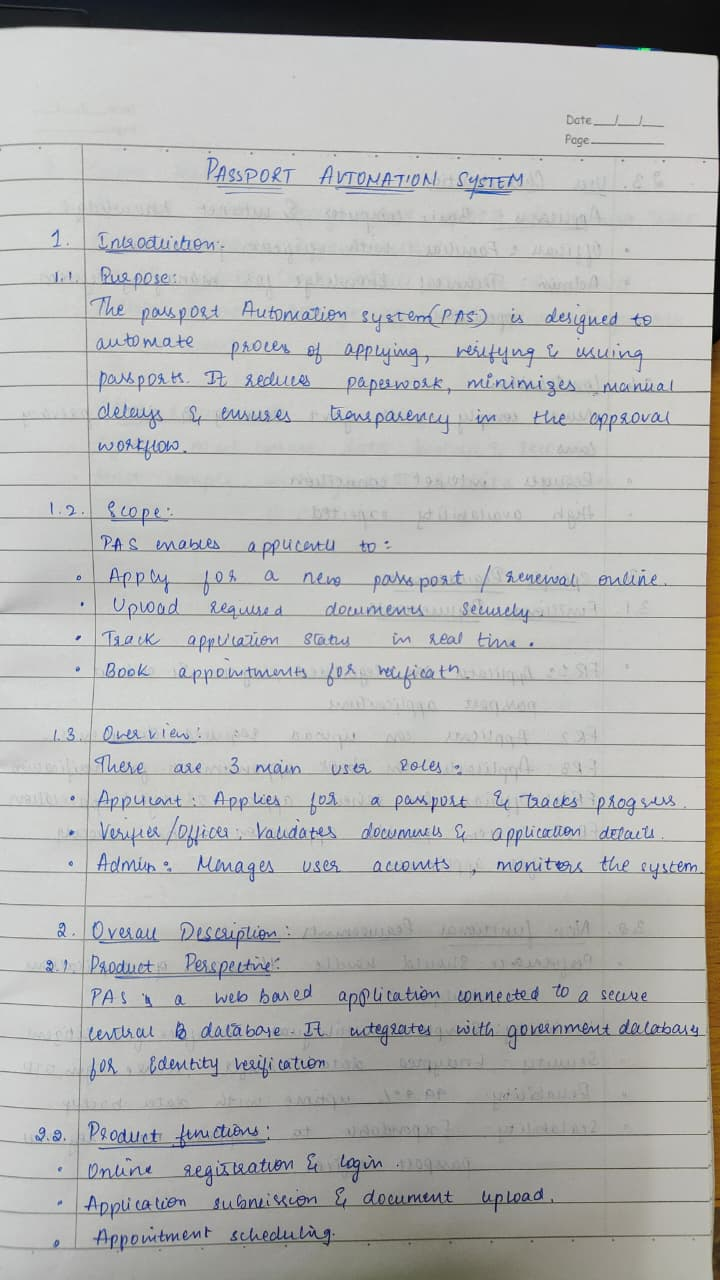 Date__/__/__
Page______
PASSPORT AUTOMATION SYSTEM
1. Introduction:
1.1. Purpose:
The passport Automation system (PAS) is designed to
automate process of applying, verifyng & issuing
passports. It reduces paperwork, minimizes manual
delays & ensures transparency in the approval
workflow.
1.2. Scope:
PAS enables applicants to:
• Apply for a new passport / renewal online.
• Upload required documents securely.
• Track application status in real time.
• Book appointments for verificatn.
1.3. Overview:
There are 3 main user roles:
• Applicant: Applies for a passport & tracks progress.
• Verifier/Officer: Validates documents & application details.
• Admin: Manages user accounts, monitors the system.
2. Overall Description:
2.1. Product Perspective:
PAS is a web based application connected to a secure
central database. It integrates with government database
for Identity verification
2.2. Product functions:
• Online registration & login.
• Application submission & document upload.
• Appointment scheduling.